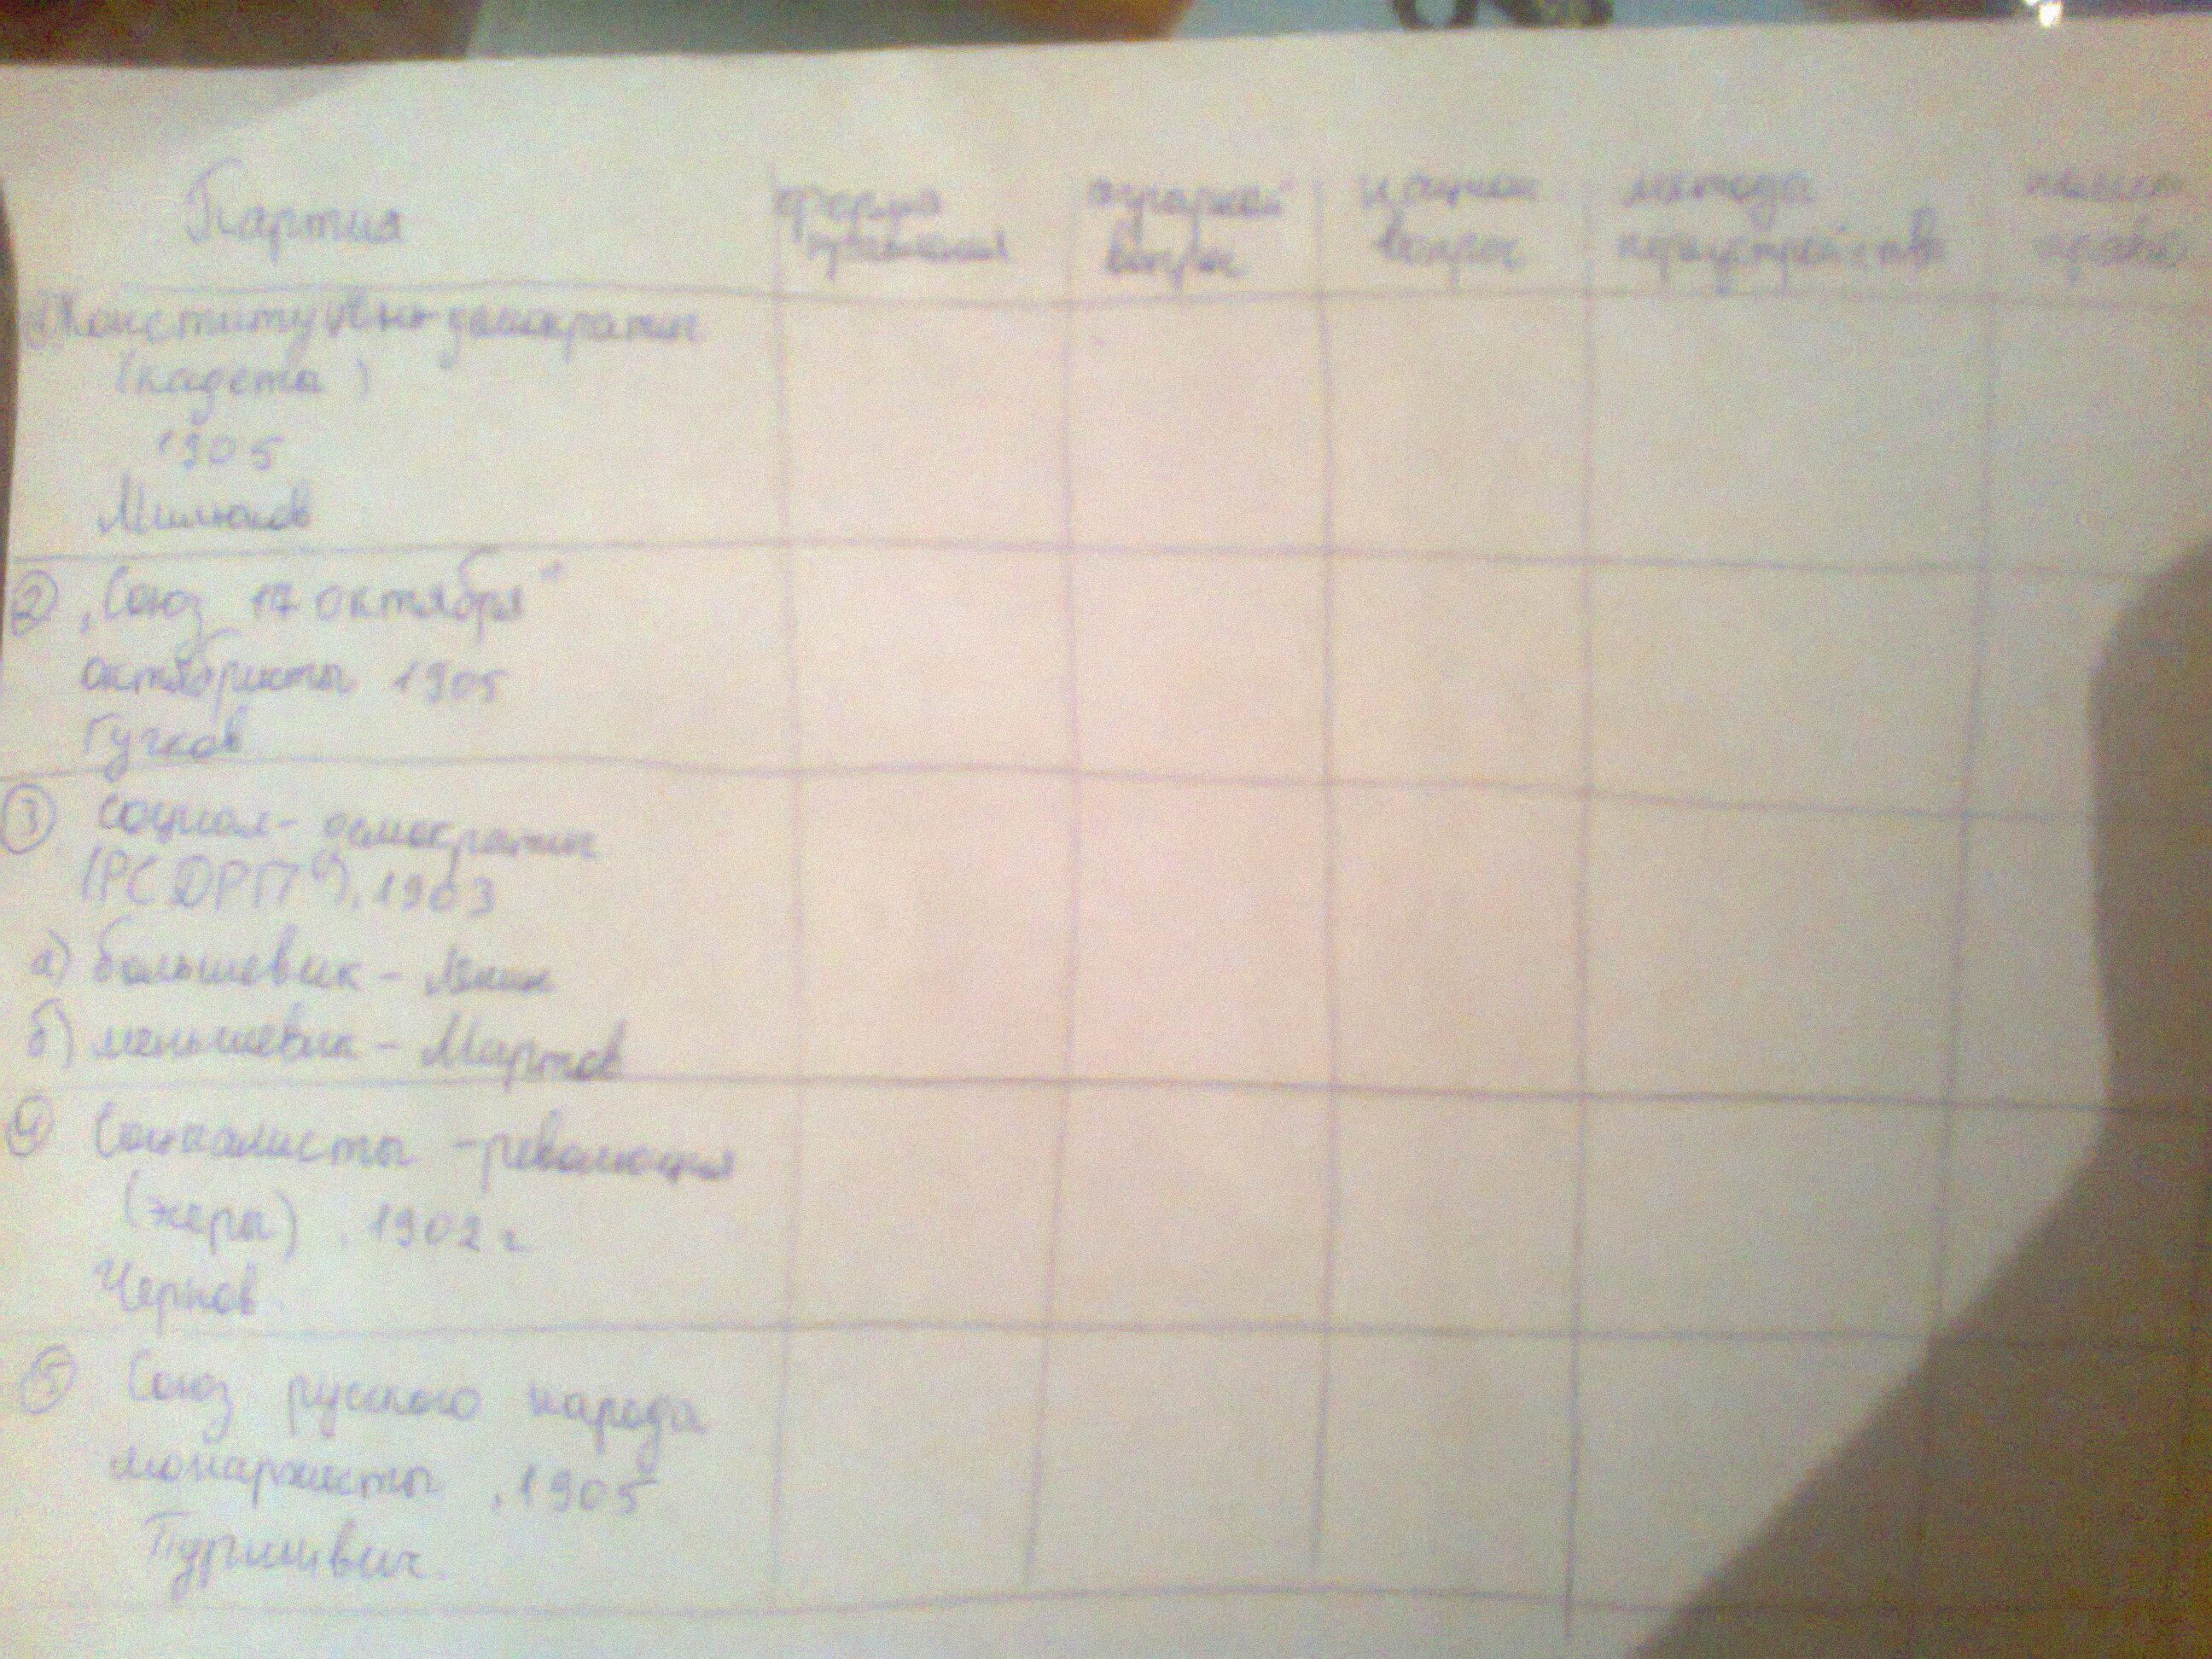 Партия
форма правления
аграрный вопрос
национ вопрос
методы переустройства
полит права
Конституцион демократы
(кадеты)
1905
Милюков
② "Союз 17 октября"
октябристы 1905
Гучков
③ социал-демократы
(РСДРП), 1903
а) большевик - Ленин
б) меньшевик - Мартов
④ Социалисты-революция
(эсеры), 1902 г
Чернов
⑤ Союз русского народа
монархисты, 1905
Пуришвич.